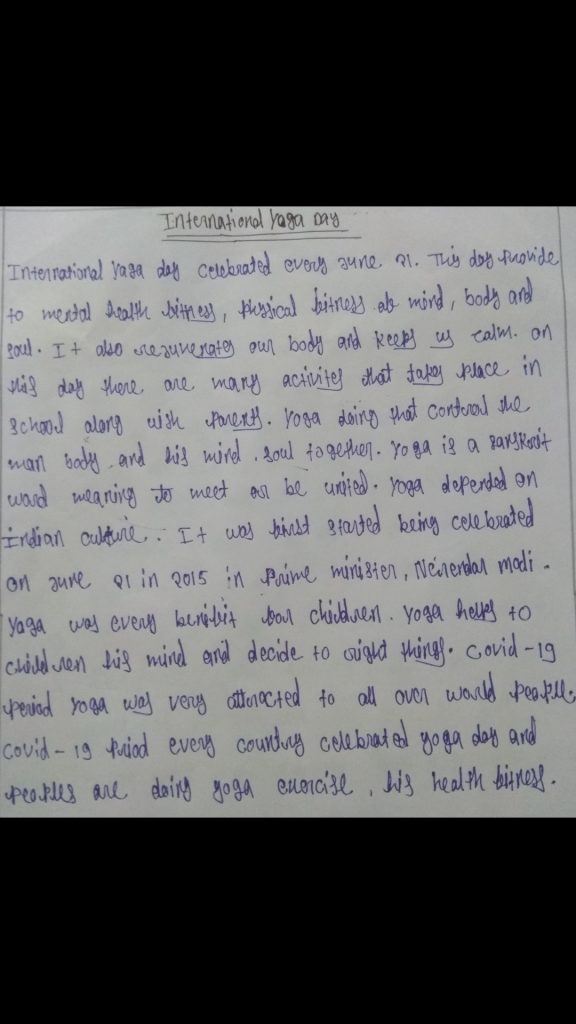 International Yoga Day
International Yaga day celebrated every June 21. This day Provide
to mental health bitness, physical bitness ob mind, body and
soul. It also rejunerates our body and keeps us calm. on
this day there are many activites that takes place in
school along wish Parents. Yoga doing that control the
man body and his mind, soul together. Yoga is a sanskrit
ward meaning to meet or be united. Yoga depended on
indian culture. It was birst started being celebrated
on June 21 in 2015 in Prime minister, Nerendar modi.
Yaga was every benibit bor children. Yoga helps to
children his mind and decide to right things. Covid-19
period Yoga was very attracted to all over world people.
Covid-19 Priod every country celebrated yoga day and
peoples are doing yoga exercise, his health bitness.